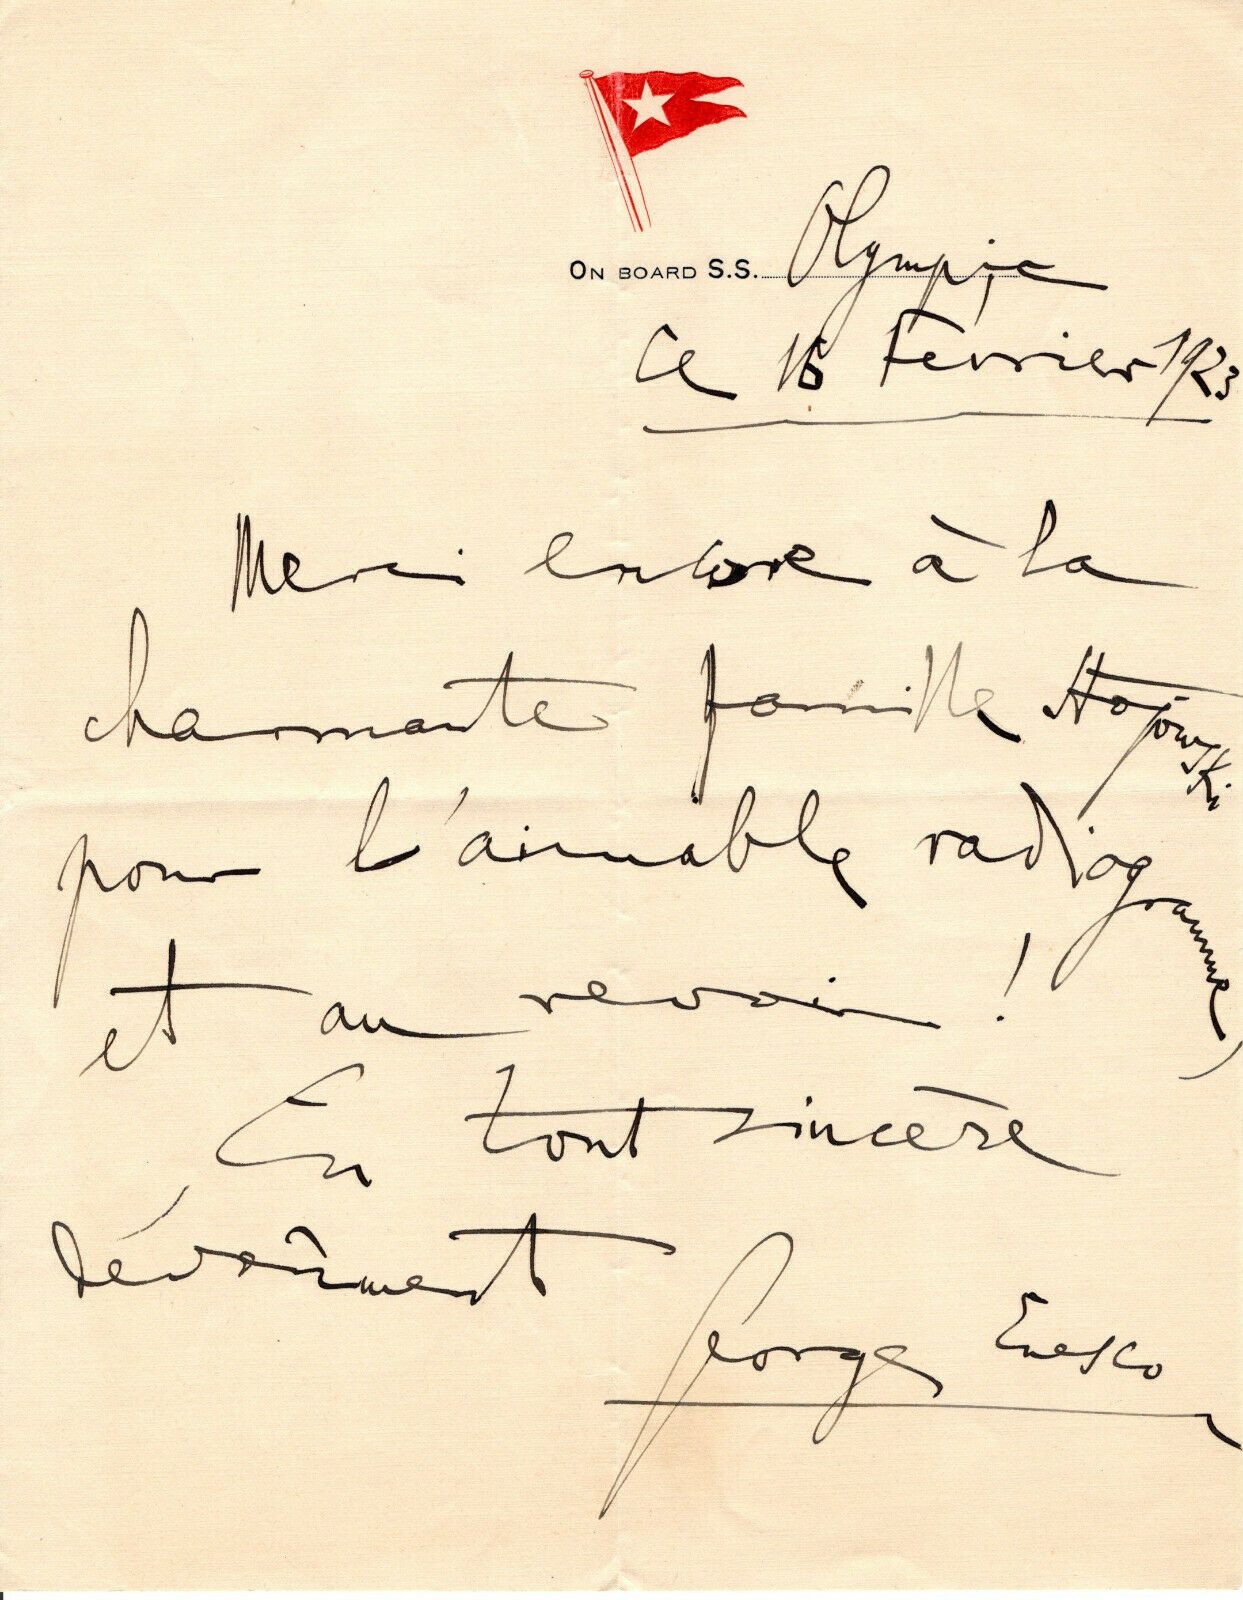 ON BOARD S.S. Olympic
ce 16 Février 1923
Merci encore à la
charmante famille
pour l'aimable radiogramme,
et au revoir !
En tout sincère
dévoûment
Georges Enesco